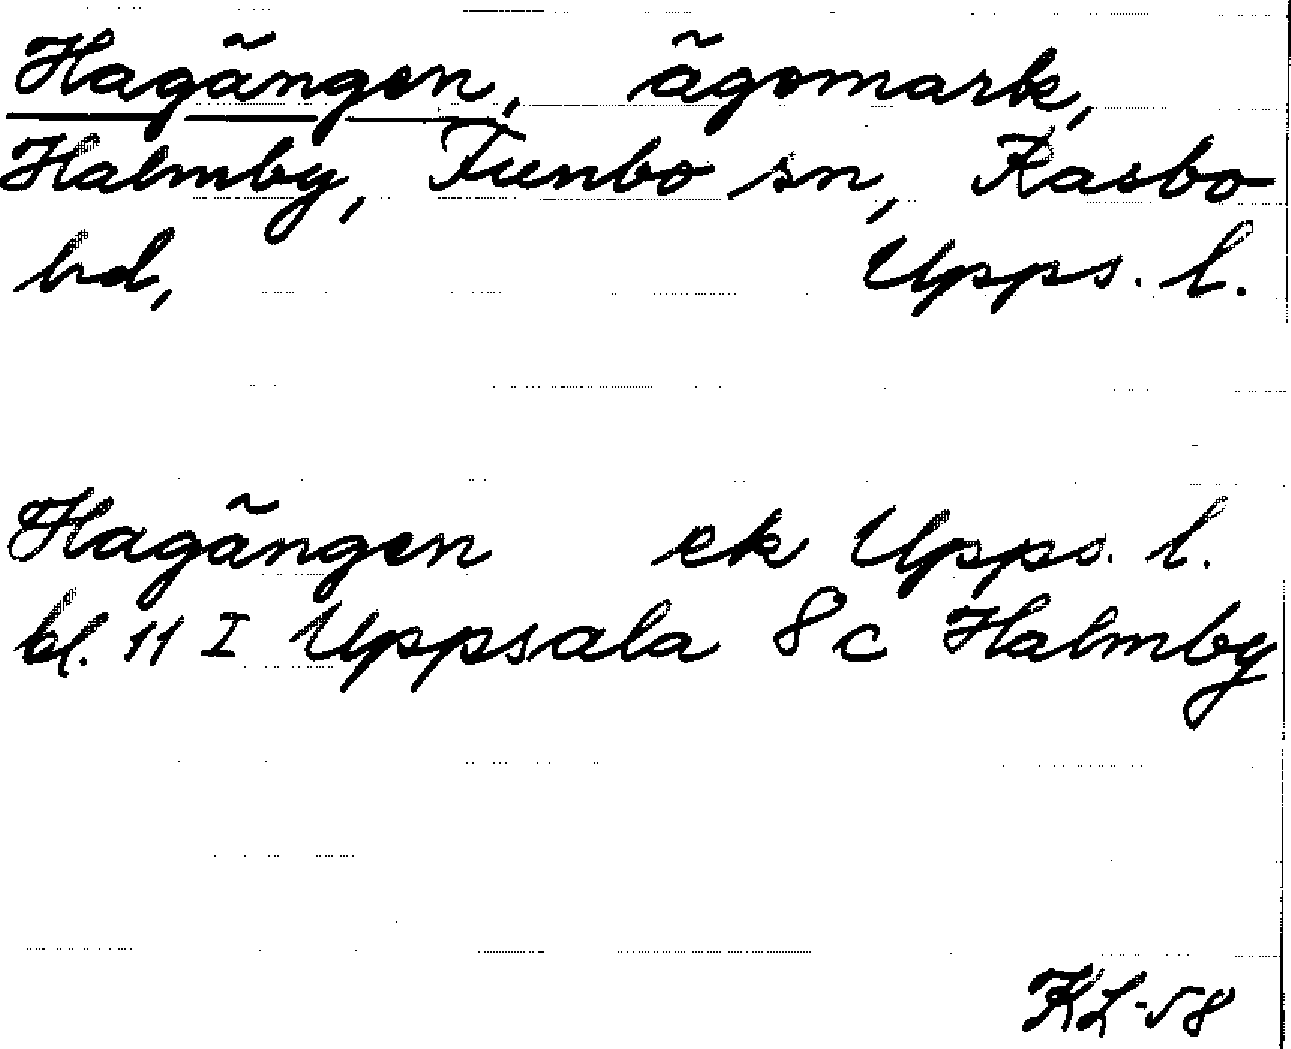 Hagängen, ägomark,
Halmby, Funbo sn, Rasbo
hd, Upps. l.
Hagängen ek Upps. l.
bl. 11 I Uppsala 8 c Halmby
KL-58